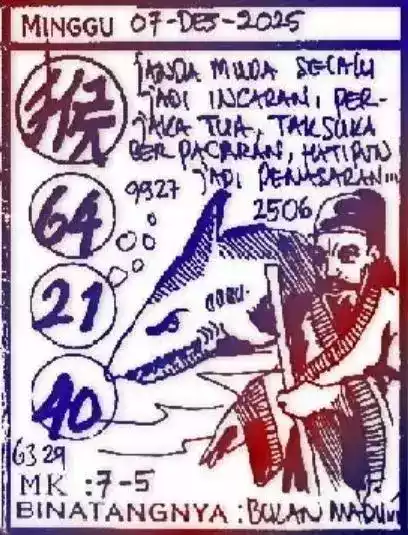 MINGGU 07-DES-2025
JANDA MUDA SELALU
JADI INCARAN, PER-
JAKA TUA, TAK SUKA
BERPACARAN, HATIPUN
JADI PENASARAN...
猴
9927
2506
64
21
40
6329
MK : 7-5
BINATANGNYA : BULAN MADU